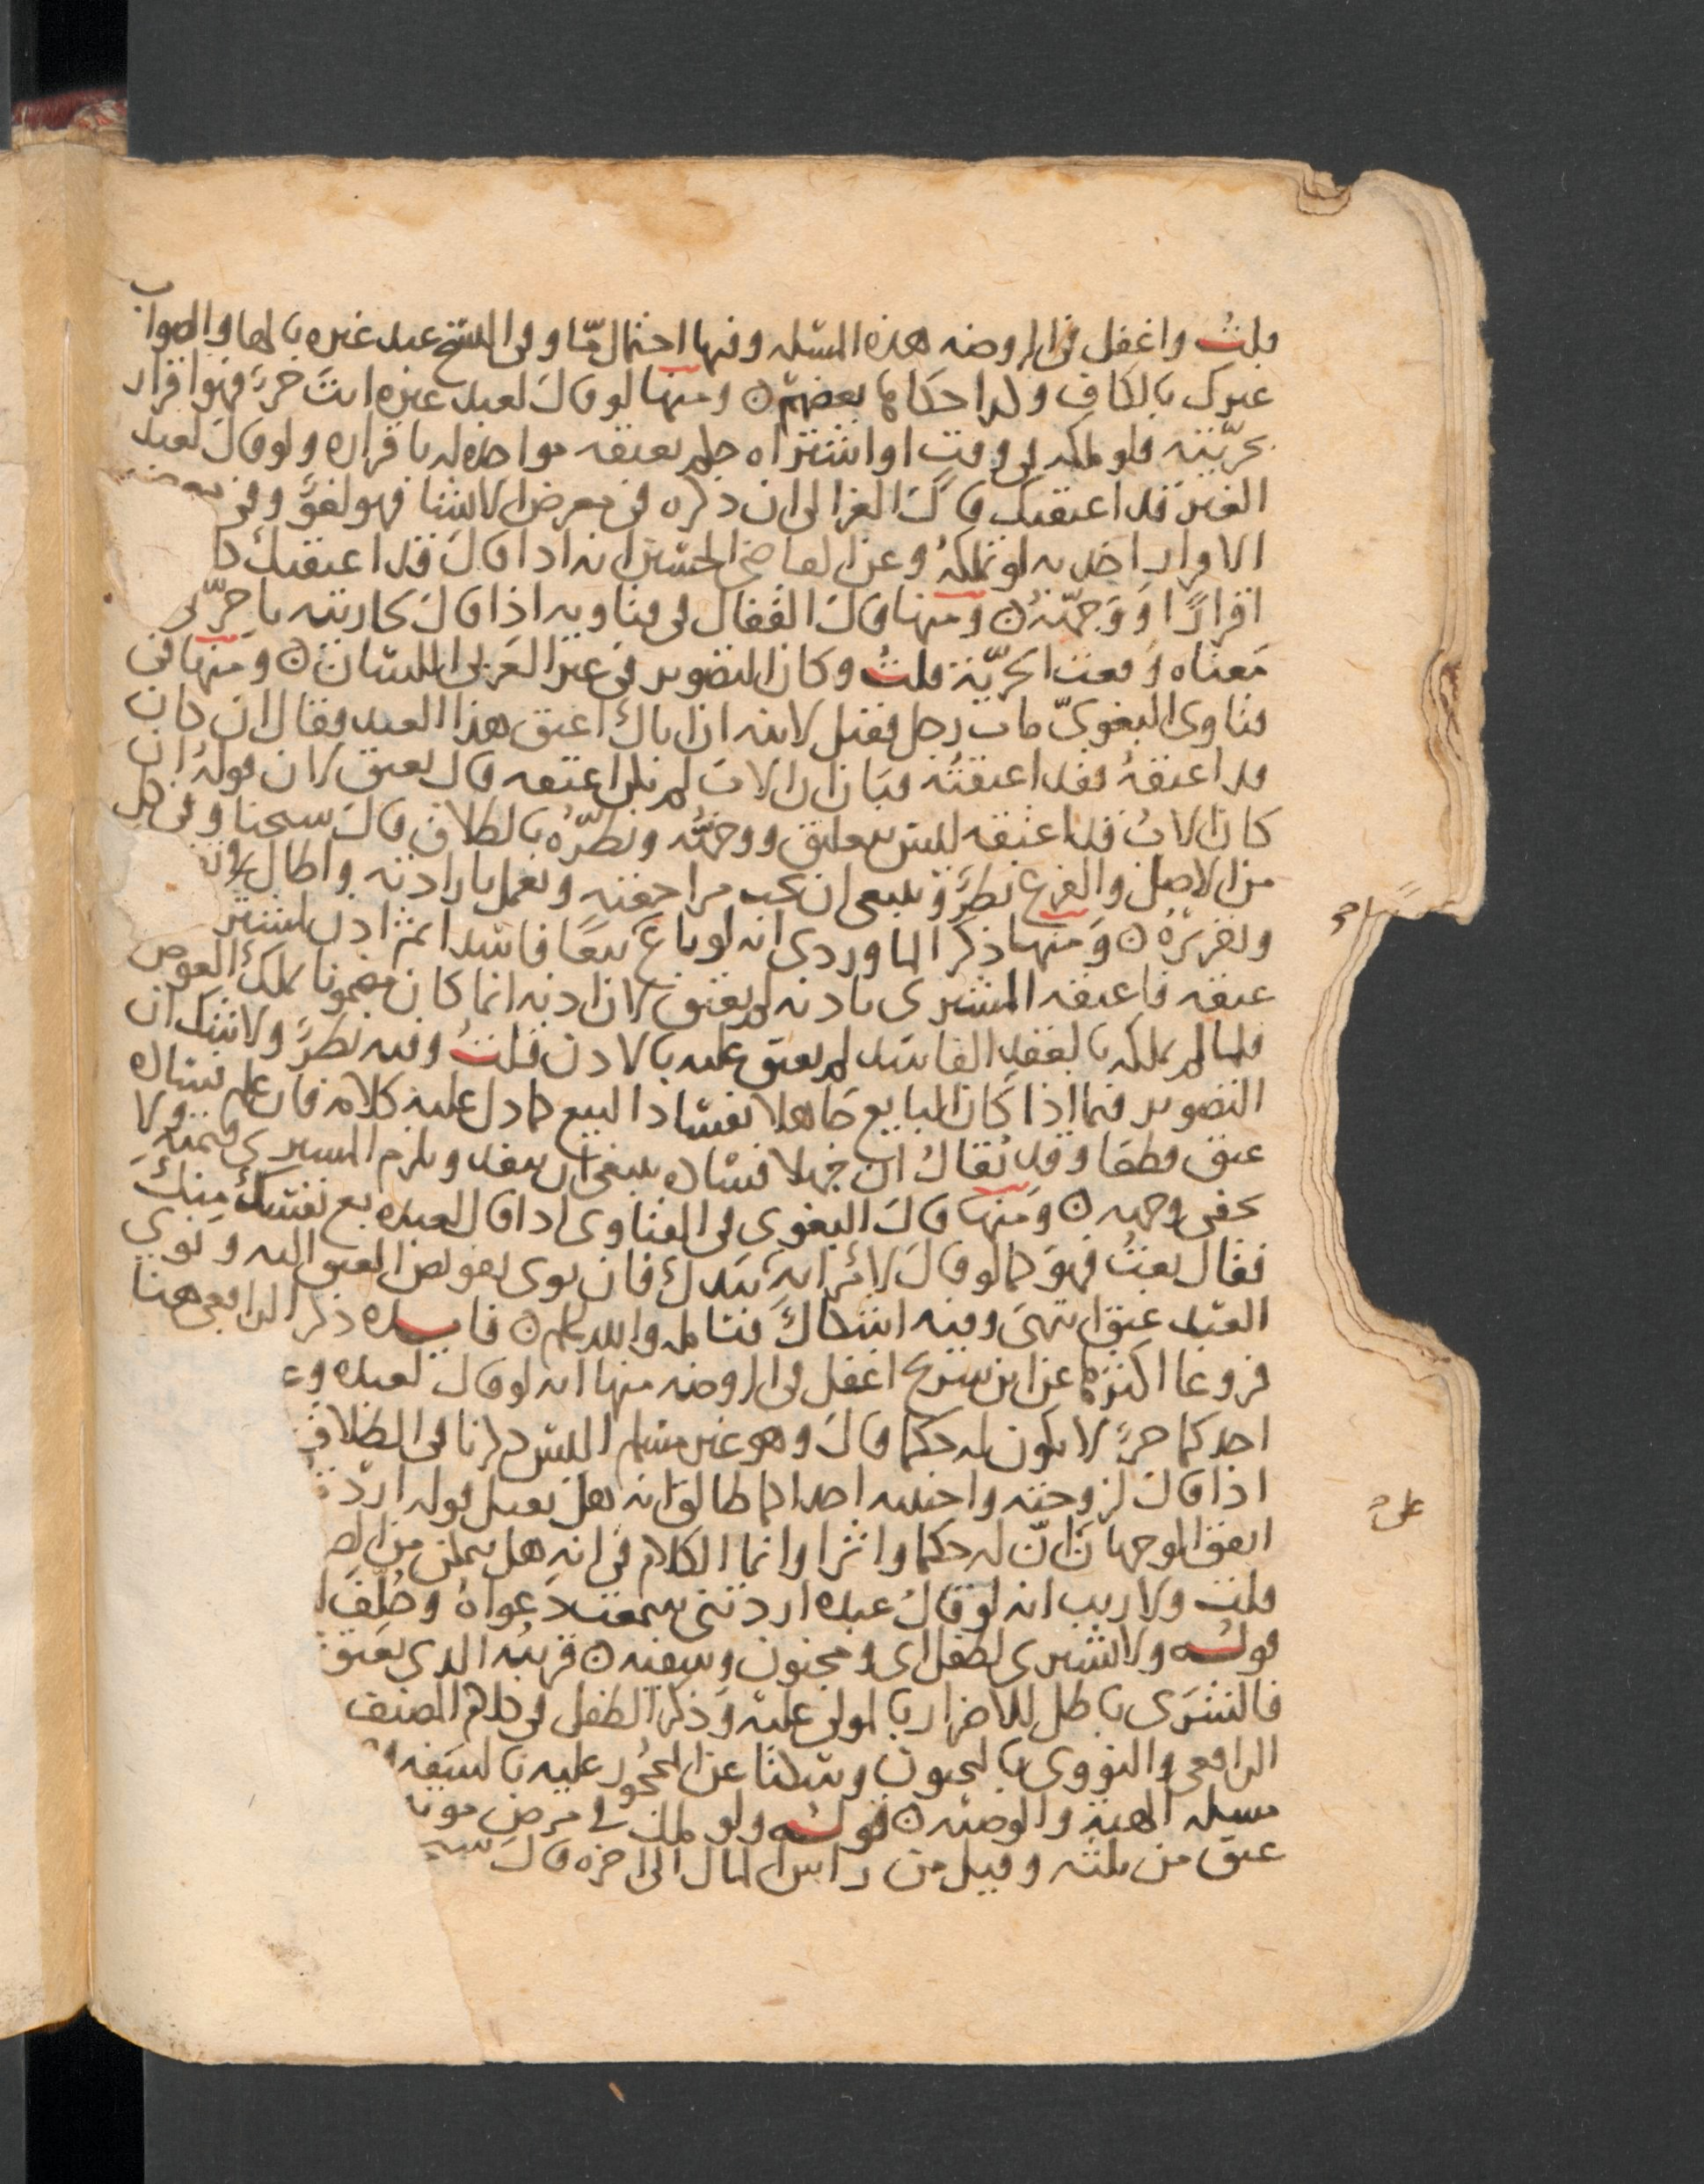 قلت واغفل في الروضه هذه المسله وفيها احتمال ما وفي النسخ عبد غيره بالها والصواب
عبدك بالكاف ولذا حكاها بعضهم ومنها لو قال لعبد غيره انت حر فهو اقرار
بحريته فلو ملكه في وقت او اشتراه حكم بعتقه مواخذه له باقراره ولو قال لعبد
الغير قد اعتقتك قال الغزالي ان ذكره في معرض الانشا فهو لغو وفي معرض
الاقرار اخذ به لو تملكه وعن القاضي الحسين انه اذا قال قد اعتقتك كا
اقرارًا ووجهته ومنها قال القفال في فتاويه اذا قال لجاريته يا حر
معناه وقعت الحرية قلت وكان التصوير في غير العربي اللسان ومنها في
فتاوى البغوي مات رجل فقيل لابنه ان اباك اعتق هذا العبد فقال ان كان
قد اعتقه فقد اعتقته فبان ان الاب لم يكن اعتقه قال يعتق لان قوله ان
كان الاب قد اعتقه ليس بتعليق ووجهته ونظره بالطلاق قال شيخنا وفي كل
من الاصل والفرع نظر وينبغي ان يجب مراجعته ويعمل بارادته واطال في
وتقريره ومنها ذكر الماوردي انه لو باع بيعًا فاسدا ثم اذن لمشتر
عتقه فاعتقه المشتري باذنه لم يعتق لان اذنه انما كان مضمونا بملك العوض
فلما لم يملكه بالعقد الفاسد لم يعتق عليه بالاذن قلت وفيه نظر ولا شك ان
التصوير فيما اذا كان البايع جاهلا بفساد البيع كما دل عليه كلامه فان علم فساده
عتق قطعا وقد يقال ان جهلا فساده ينبغي ان ينفذ ويلزم المشتري قيمته ولا
يخفى وجهه ومنها قال البغوي في الفتاوى اذا قال لعبده بع نفسك منك
فقال بعت فهو كما لو قال لامراته بيدك فان نوى تفويض العتق اليه ونوى
العبد عتق انتهى وفيه اشكال فتامله والله اعلم فايده ذكر الرافعي هنا
فروعا اكثرها عن ابن سريج اغفل في الروضه منها انه لو قال لعبده و
احدكما حر لا يكون له حكم قال وهو غير مسلم اليس ذكرنا في الطلاق
اذا قال لزوجته واجنبيه احداكما طالق انه هل يقبل قوله اردت
اتفق الوجهان ان له حكما واثرا وانما الكلام في انه هل يمكن من الص
قلت ولا ريب انه لو قال عبده اردتني سمعت دعواه وحلف
قوله ولا يشتري لطفل اي ومجنون وسفيه قريبه الذي يعتق
فالشرى باطل للاضرار بالمولى عليه وذكر الطفل في كلام المصنف
الرافعي والنووي بالمجنون وسكتا عن المحجور عليه بالسفه
مسله الهبة والوصيه قوله ولو ملك في مرض موته
عتق من ثلثه وقيل من راس المال الى اخره قال